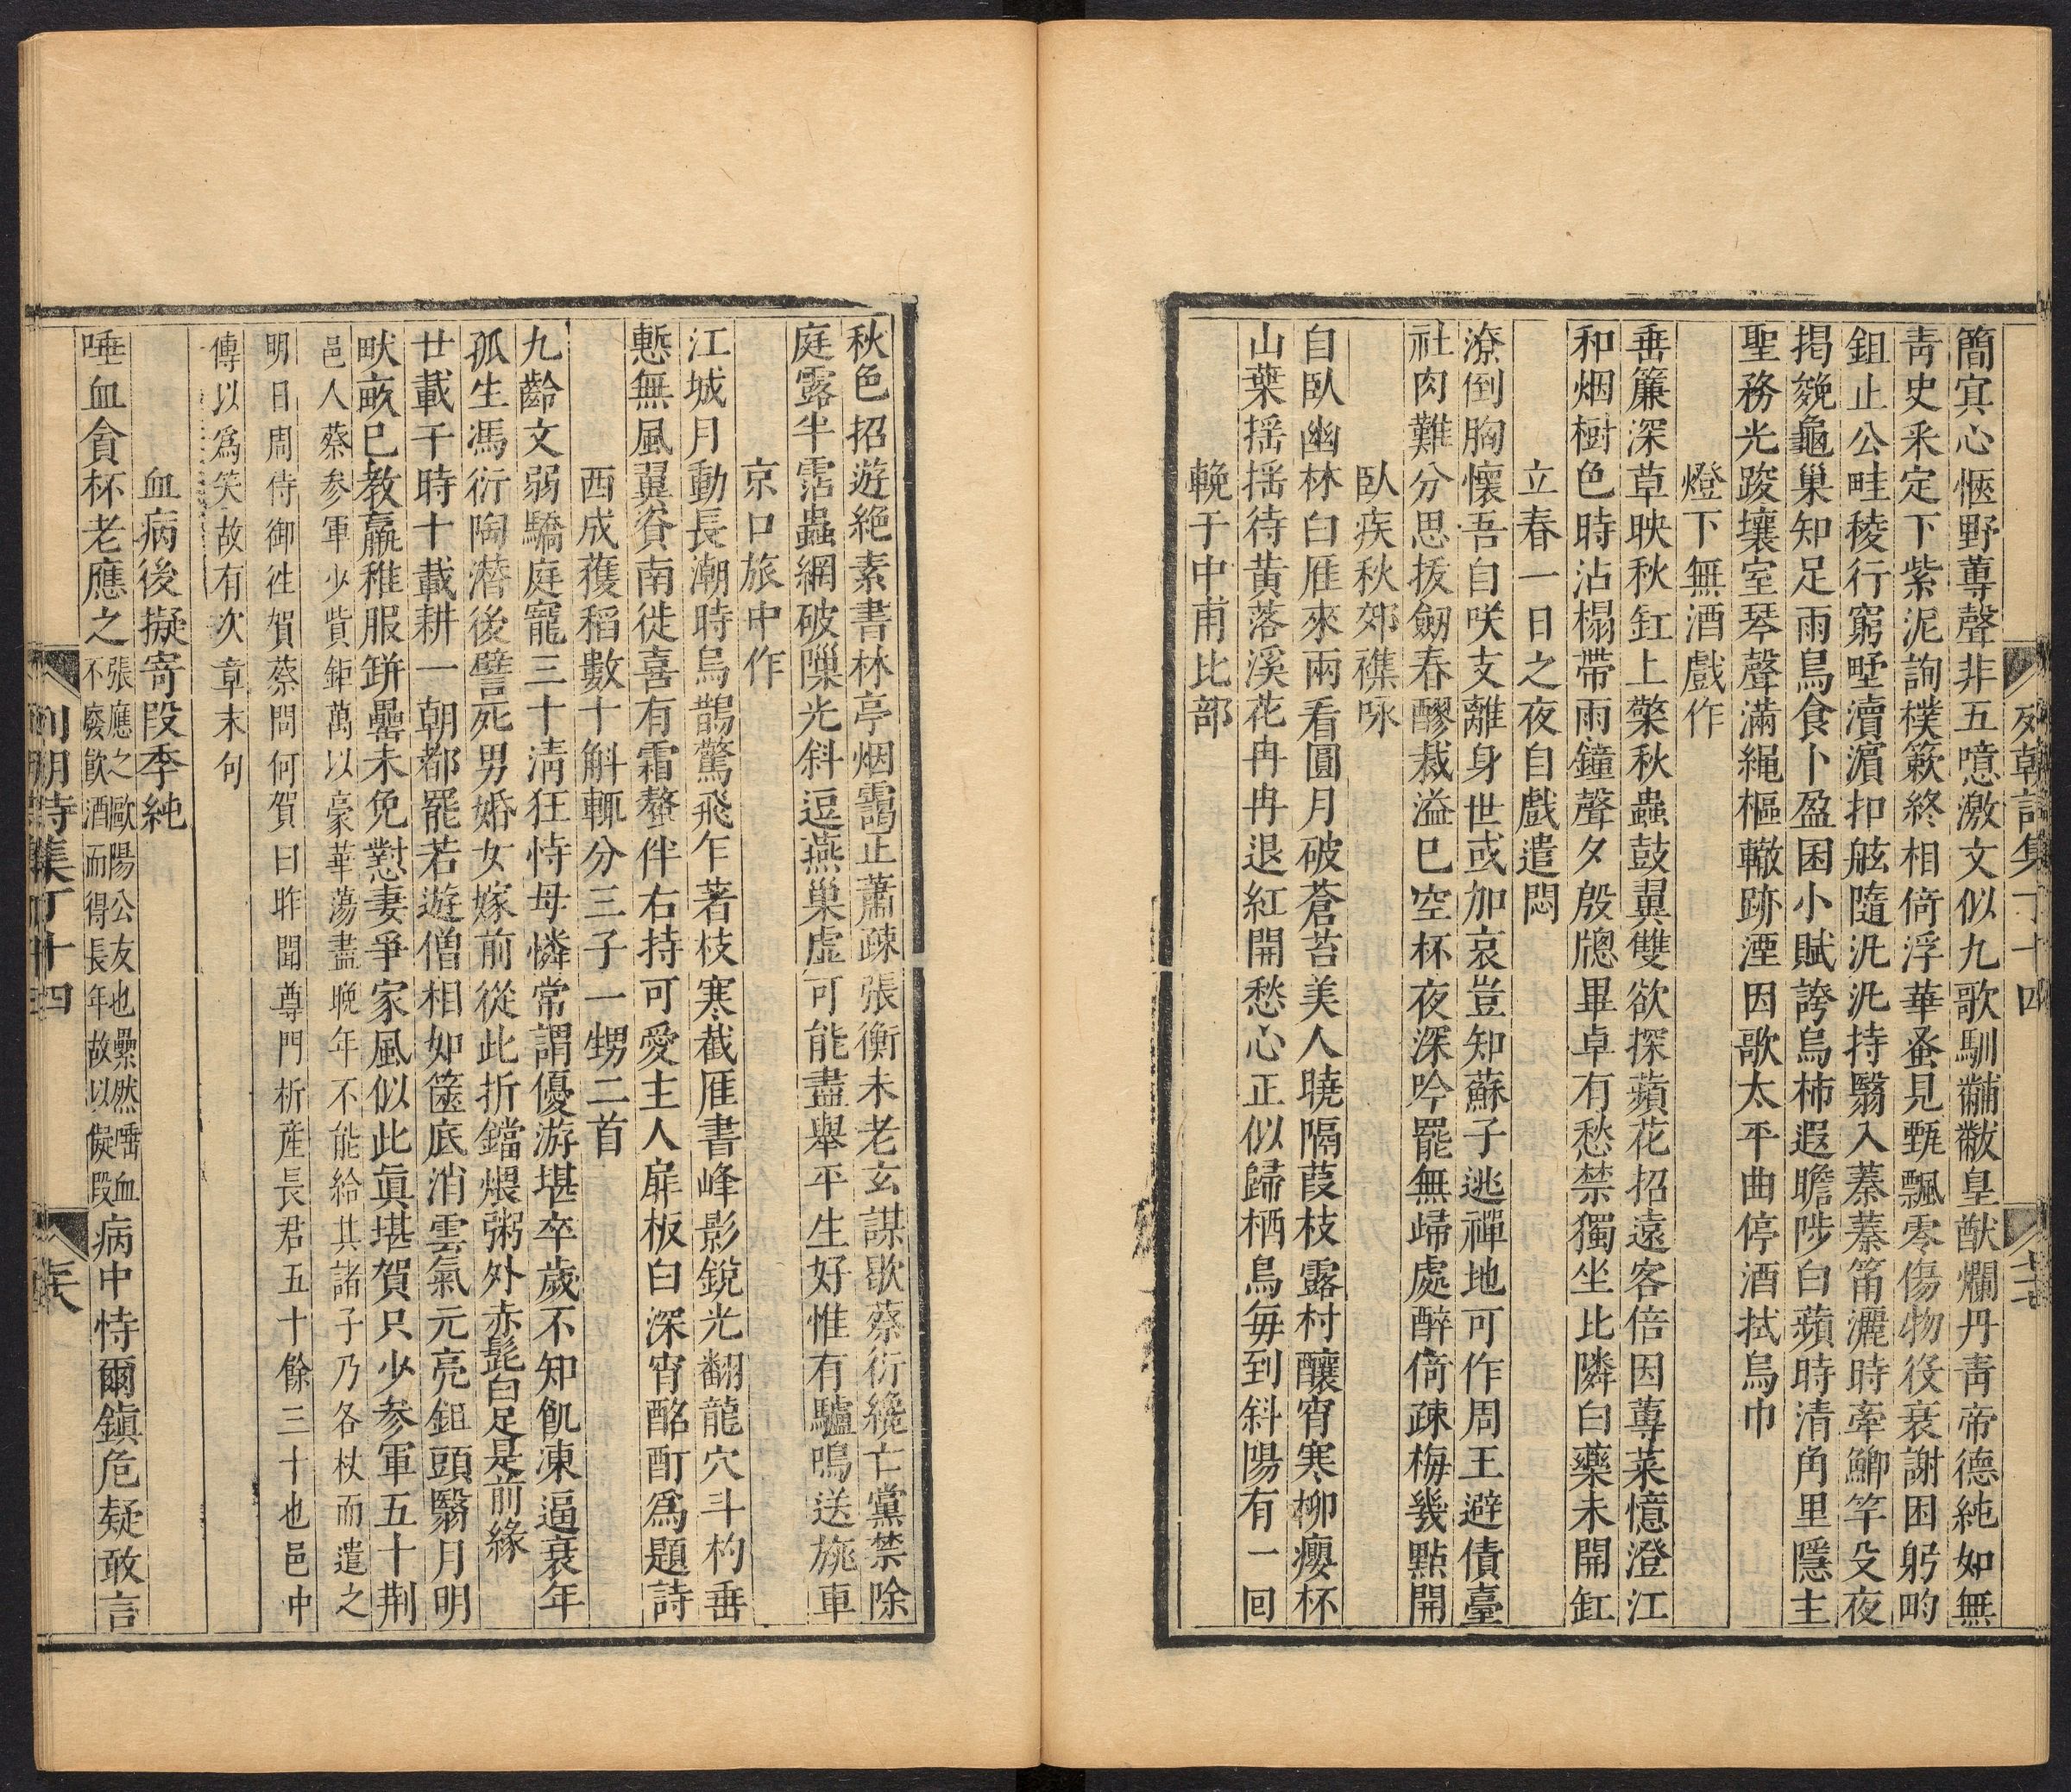 列朝詩集丁十四 七
簡寘心愜野蓴聲非五噫激文似九歌馴黼黻皇猷爛丹靑帝德純如無
靑史釆定下紫泥詢樸簌終相倚浮華蚤見甄飄零傷物役衰謝困躬畇
鉏止公畦稜行窮墅瀆濵扣舷隨汎汎持翳入蓁蓁笛灑時牽鯽竿殳夜
揭㕙龜巢知足雨烏食卜盈囷小賦誇烏柿遐瞻陟白蘋時清角里隱主
聖務光踆壤室琴聲滿繩樞轍跡湮因歌太平曲停酒拭烏巾
燈下無酒戲作
垂簾深草映秋缸上檠秋蟲鼓翼雙欲探蘋花招遠客倍因蓴菜憶澄江
和烟樹色時沾榻帶雨鐘聲夕殷牕畢卓有愁禁獨坐比隣白藥未開缸
立春一日之夜自戲遣悶
潦倒胸懷吾自咲支離身世或加哀豈知蘇子逃禪地可作周王避債臺
社肉難分思㧞劒春醪裁溢巳空杯夜深吟罷無歸處醉倚疎梅幾點開
臥疾秋郊襍咏
自臥幽林白雁來兩看圓月破蒼苔美人曉隔葭枝露村釀宵寒柳癭杯
山葉揺揺待黄落溪花冉冉退紅開愁心正似歸栖鳥每到斜陽有一回
輓于中甫比部
秋色招遊絶素書林亭烟靄正蕭疎張衡未老玄謀歇蔡衍纔亡黨禁除
庭露半霑蟲網破隟光斜逗燕巢虚可能盡舉平生好惟有驢鳴送旐車
京口旅中作
江城月動長潮時烏鵲驚飛乍著枝寒截雁書峰影銳光翻龍穴斗杓垂
慙無風翼貧南徙喜有霜螯伴右持可愛主人扉板白深宵酩酊爲題詩
西成穫稻數十斛輒分三子一甥二首
九齡文弱驕庭寵三十淸狂恃母憐常謂優游堪卒歲不知飢凍逼衰年
孤生馮衍陶潛後譬死男婚女嫁前從此折鐺煨粥外赤髭白足是前緣
廿載干時十載耕一朝都罷若遊僧相如篋底消雲氣元亮鉏頭翳月明
畎畝巳教羸稚服缾罍未免懟妻爭家風似此眞堪賀只少参軍五十荆
邑人蔡参軍少貲鉅萬以豪華蕩盡晩年不能給其諸子乃各杖而遣之
明日周侍御徃賀蔡問何賀曰昨聞尊門析産長君五十餘三十也邑中
傳以爲笑故有次章末句
血病後擬寄段季純
唾血貪杯老應之張應之歐陽公友也纍然唾血不廢飮酒而得長年故以儗段病中恃爾鎭危疑敢言
列朝詩集丁十四 八